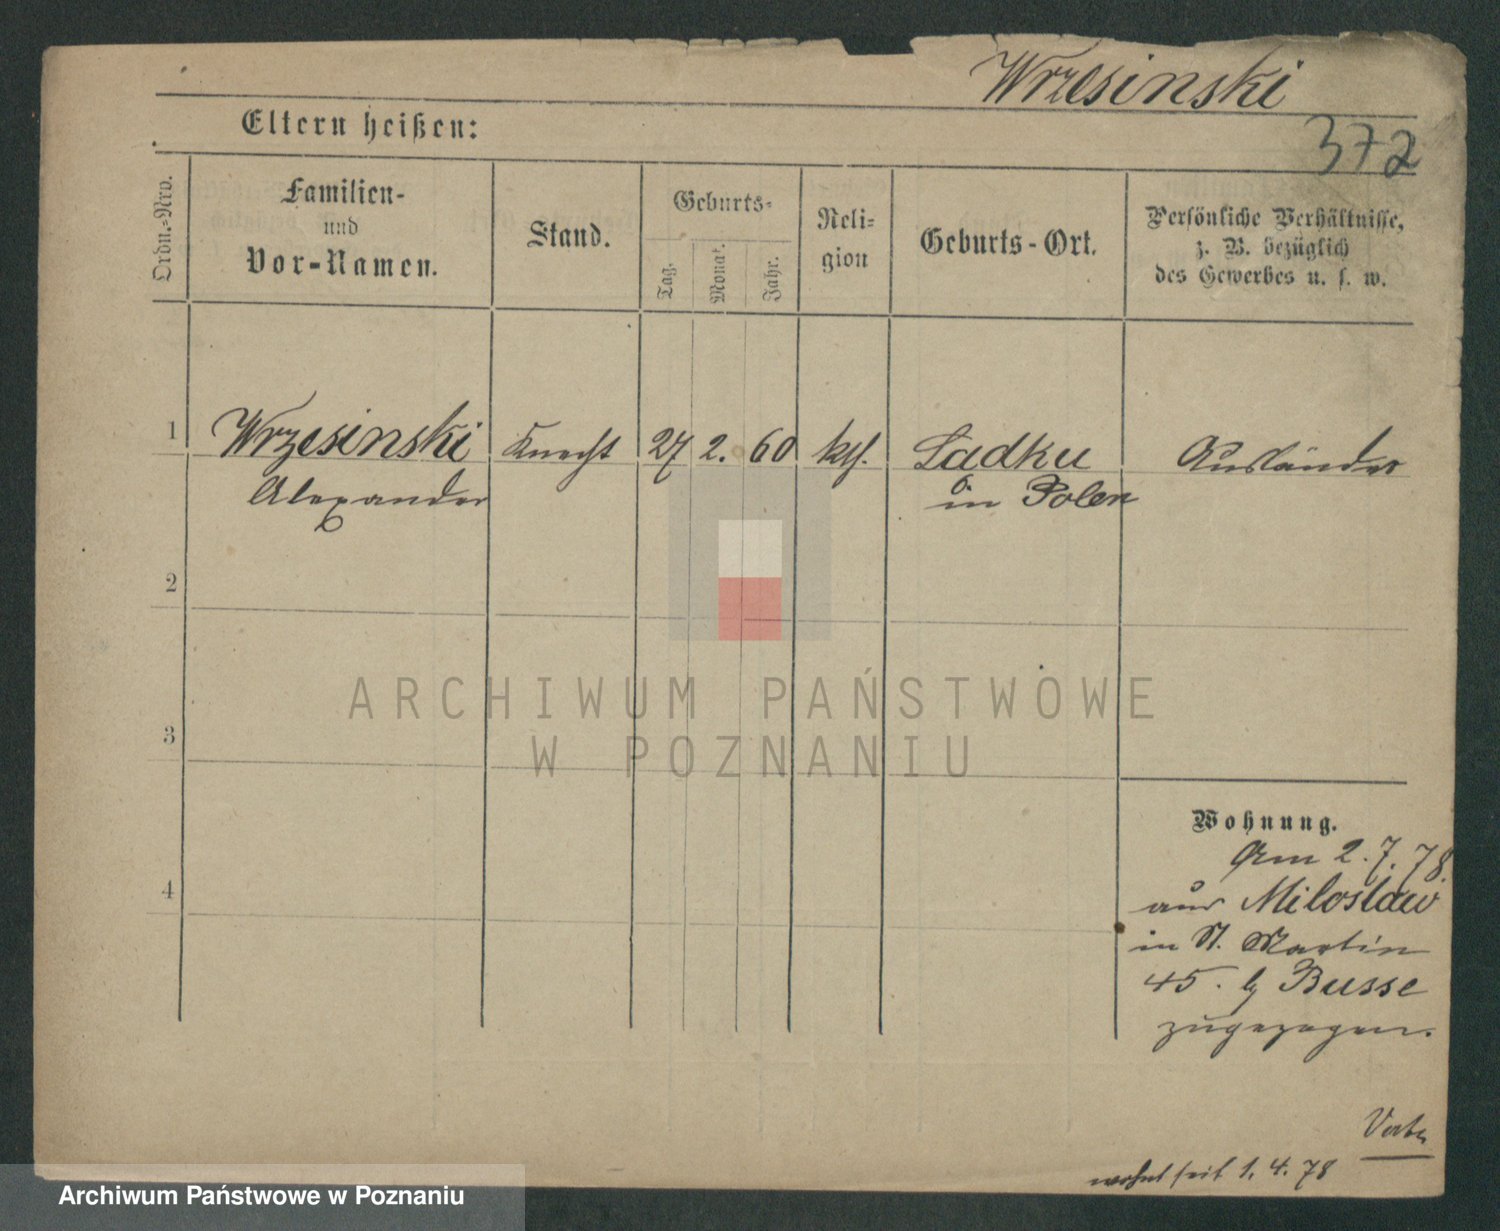 Wrzesinski
372
Eltern heißen:
Ordn.-Nro.
Familien-
und
Vor-Namen.
Stand.
Geburts-
Tag.
Monat.
Jahr.
Reli-
gion
Geburts-Ort.
Persönliche Verhältnisse,
z. B. bezüglich
des Gewerbes u. s. w.
1
Wrzesinski
Alexander
Knecht
27
2.
60
kth.
Ladku
in Polen
Ausländer
2
3
4
Wohnung.
Am 2.7.78.
aus Miloslaw
in St. Martin
45. b Busse
zugezogen.
wohnt seit 1.4.78
ARCHIWUM PAŃSTWOWE
W POZNANIU
Archiwum Państwowe w Poznaniu